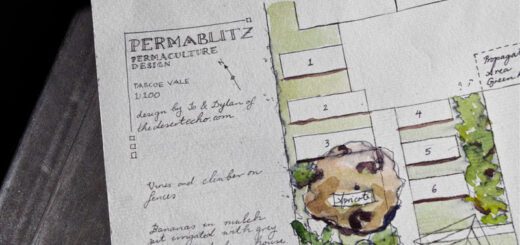 PERMABLITZ
PERMACULTURE
DESIGN
PASCOE VALE
1:100
design by Jo & Dylan of
thedesertecho.com
Vines and climber on
fences
Bananas in mulch
pit irrigated with grey
house
1
2
3
4
5
6
Apricot
Propagat
Area
Green